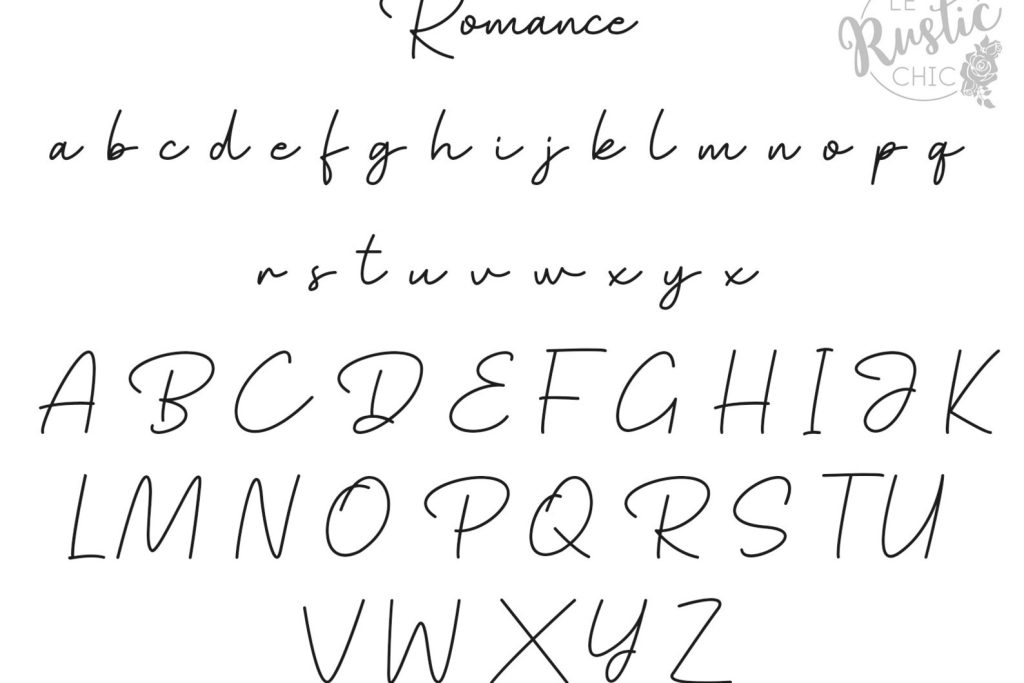 Romance
LE
Rustic
CHIC
a b c d e f g h i j k l m n o p q
r s t u v w x y x
A B C D E F G H I J K
L M N O P Q R S T U
V W X Y Z